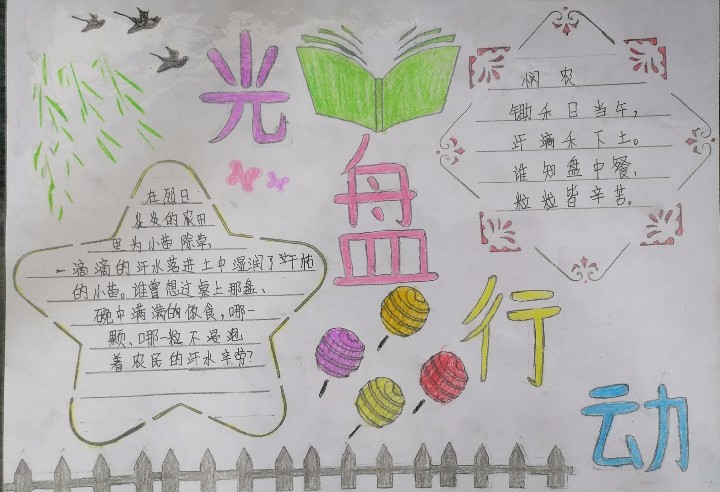 光盘行动
悯农
锄禾日当午,
汗滴禾下土。
谁知盘中餐,
粒粒皆辛苦。
在烈日
炎炎的农田
里为小苗除草,
一滴滴的汗水落进土中湿润了
的小苗。谁曾想过桌上那盘、
碗中满满的饭食,哪一
颗、哪一粒不浸泡
着农民的汗水辛劳?